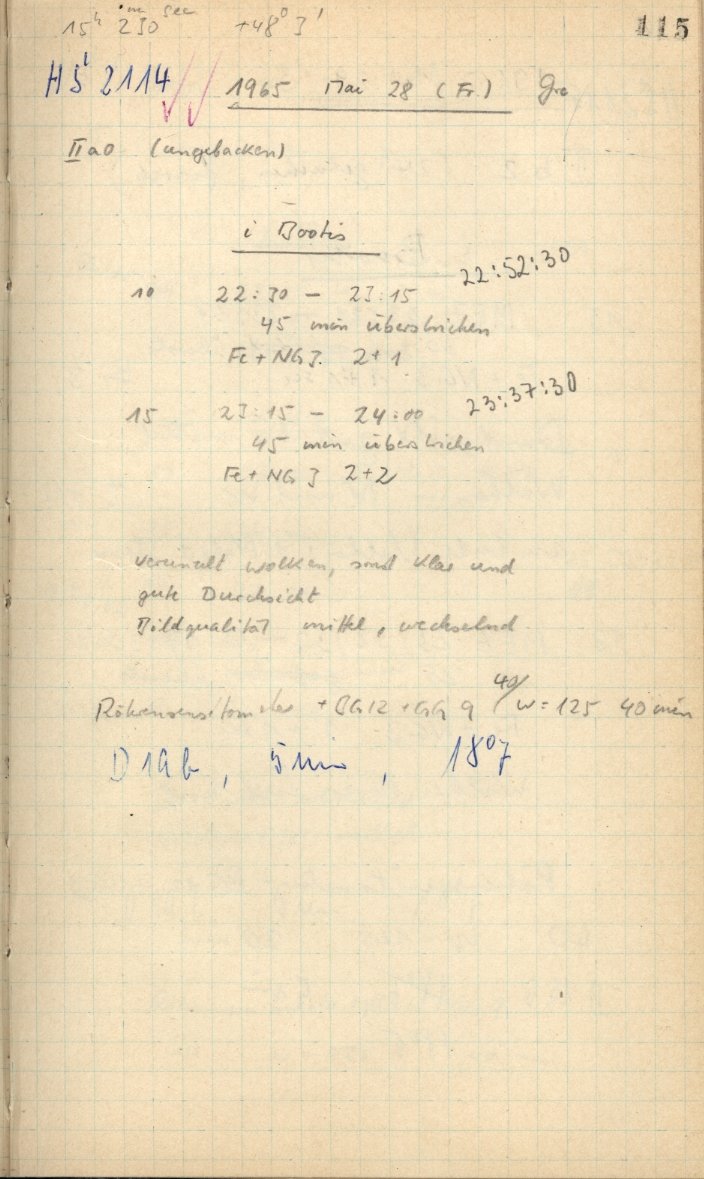 15h 2m 30sec +48° 3'
115
HS 2114 1965 Mai 28 (Fr.) Gre
IIa0 (ungebacken)
i Bootis
10 22:30 – 23:15 22:52:30
45 min überstrichen
Fe+NG3 2+1
15 23:15 – 24:00 23:37:30
45 min überstrichen
Fe+NG3 2+2
vereinzelt Wolken, sonst klar und
gute Durchsicht
Bildqualität mittel, wechselnd
Röhrensensitometer + BG12 + GG 9 40/ W=125 40 min
D19b, 5 min, 18°7